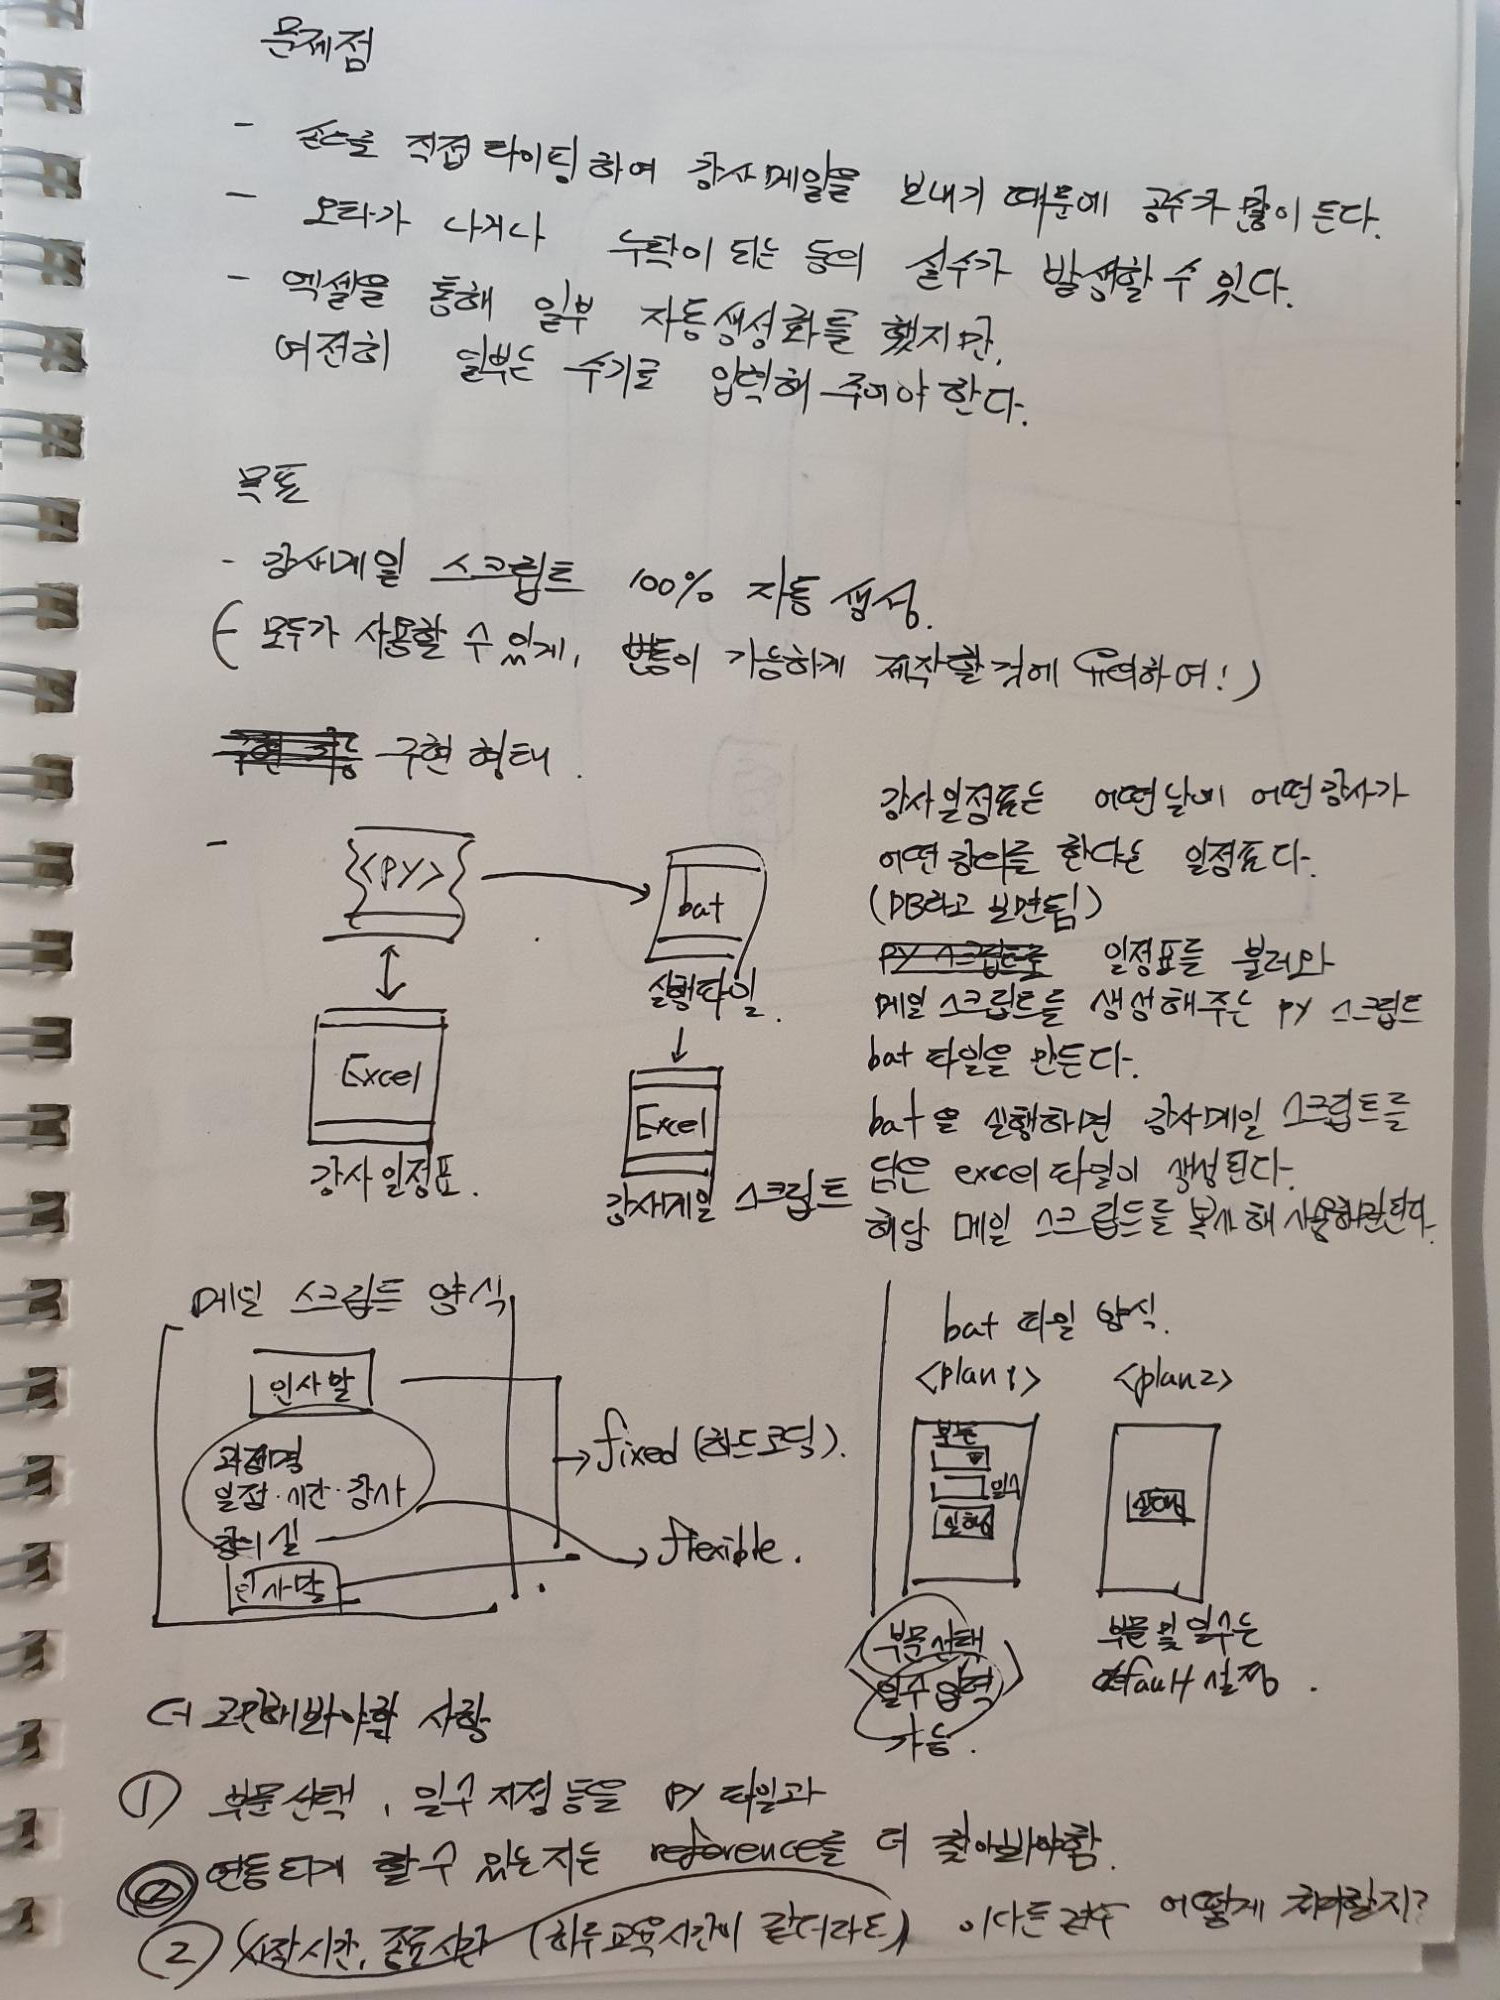 문제점
- 손으로 직접 타이핑하여 강사메일을 보내기 때문에 공수가 많이 든다.
- 오타가 나거나 누락이 되는 등의 실수가 발생할 수 있다.
- 엑셀을 통해 일부 자동생성화를 했지만,
여전히 일부는 수기로 입력해 주어야 한다.
목표
- 강사메일 스크립트 100% 자동 생성.
(모두가 사용할 수 있게, 변동이 가능하게 제작할 것에 유의하여!)
구현 형태.
-
<PY>
bat
실행파일.
Excel
강사일정표.
Excel
강사메일 스크립트
강사일정표는 어떤날에 어떤강사가
어떤강의를 한다는 일정표다.
(DB라고 보면됨)
일정표를 불러와
메일 스크립트를 생성해주는 PY 스크립트
bat 파일을 만든다.
bat을 실행하면 강사메일 스크립트를
담은 excel 파일이 생성된다.
해당 메일 스크립트를 복사해 사용하면된다.
메일 스크립트 양식
인사말
과정명
일정·시간·강사
강의실
인사말
fixed (하드코딩).
flexible.
bat 파일 양식.
<plan1>
부문
일수
실행
부문선택
일수 입력
가능.
<plan2>
실행
부문 및 일수는
default 설정.
더 고민해봐야할 사항
① 부문선택, 일수 지정 등을 PY 파일과
연동되게 할 수 있는지는 reference를 더 찾아봐야함.
② 시작시간, 종료시간 (하루 교육시간이 같더라도) 이 다른 경우 어떻게 처리할지?